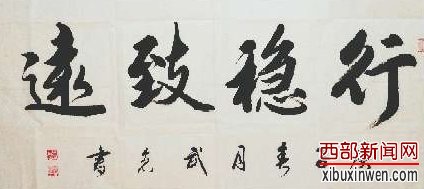 行稳致远
春月武
书
西部新闻网
xibuxinwen.com